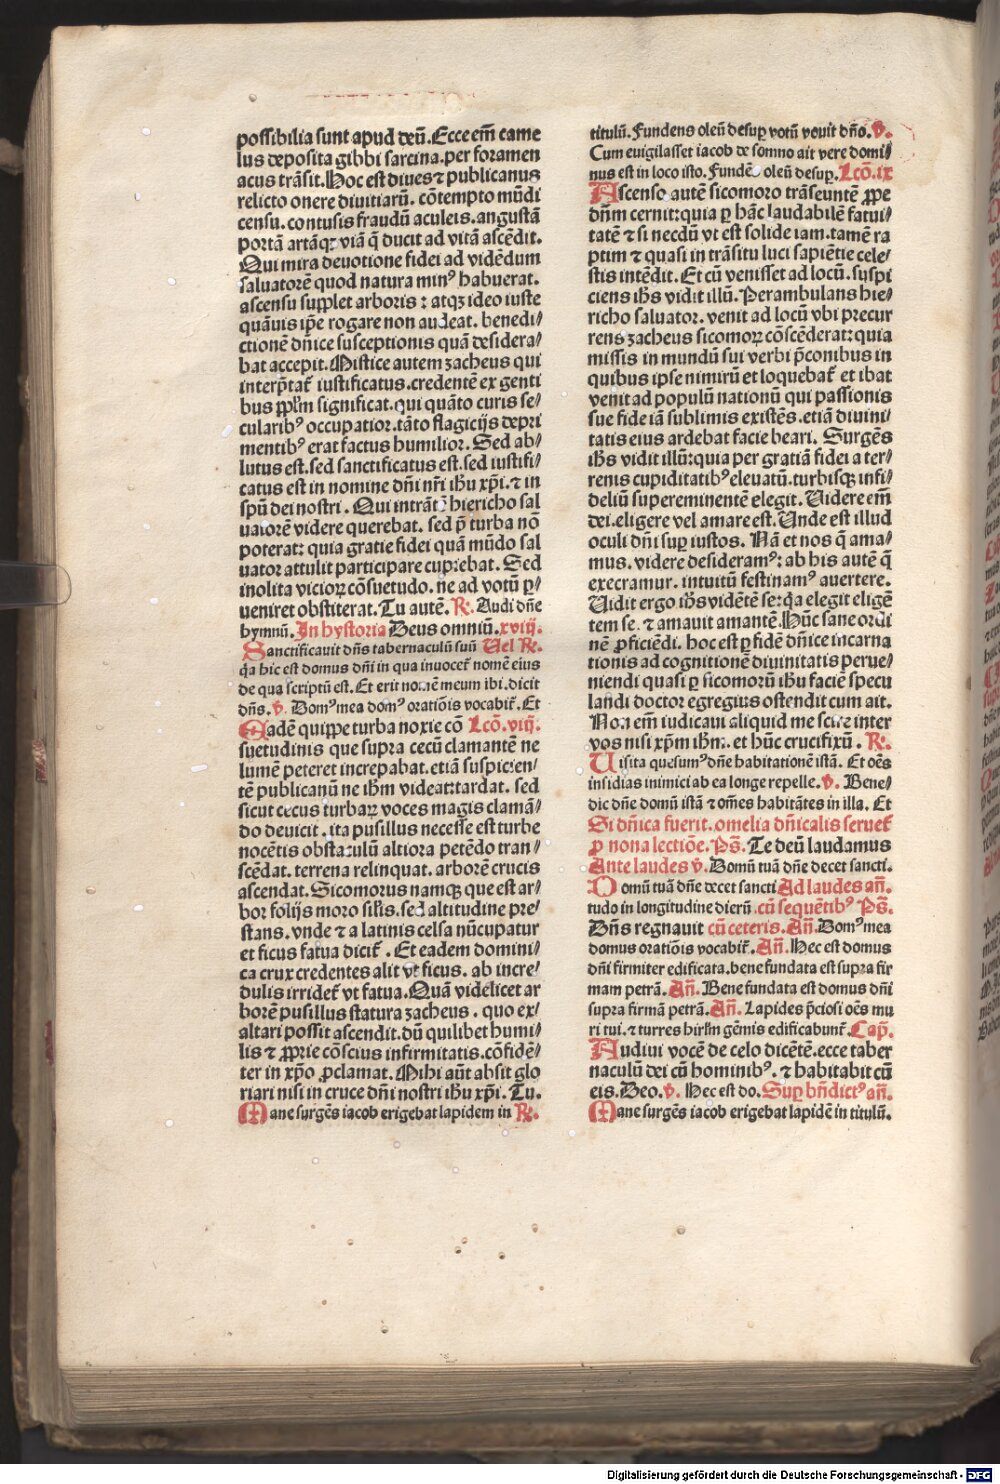 possibilia sunt apud deū. Ecce em̄ came
lus deposita gibbi sarcina. per foramen
acus trāsit. Hoc est diues ⁊ publicanus
relicto onere diuitiarū. cōtempto mūdi
censu. contusis fraudū aculeis. angustā
portā artāqꝫ viā q̄ ducit ad vitā ascēdit.
Qui mira deuotione fidei ad vidēdum
saluatorē quod natura minꝰ habuerat.
ascensu supplet arboris : atqꝫ ideo iuste
quāuis ip̄e rogare non audeat. benedi/
ctionē dn̄ice susceptionis quā desidera/
bat accepit. Mistice autem zacheus qui
interp̄tat̄ iustificatus. credentē ex genti
bus pp̄lm significat. qui quāto curis se/
cularibꝰ occupatior. tāto flagicijs depri
mentibꝰ erat factus humilior. Sed ab/
lutus est. sed sanctificatus est. sed iustifi/
catus est in nomine dn̄i nr̄i ihū xp̄i. ⁊ in
spū dei nostri. Qui intrātē hiericho sal
uatorē videre querebat. sed p̄ turba nō
poterat: quia gratie fidei quā mūdo sal
uator attulit participare cupiebat. Sed
inolita vicioꝝ cōsuetudo. ne ad votū ꝑ/
ueniret obstiterat. Tu autē. R̄. Audi dn̄e
hymnū. In hystoria Deus omniū. xviij.
Sanctificauit dn̄s tabernaculū suū Vel R̄.
q̄a hic est domus dn̄i in qua inuocet̄ nomē eius
de qua scriptū est. Et erit nomē meum ibi. dicit
dn̄s. v̄. Domꝰ mea domꝰ oratiōis vocabit̄. Et
Eadē quippe turba noxie cō Lcō. viij.
suetudinis que supra cecū clamantē ne
lumē peteret increpabat. etiā suspicien/
tē publicanū ne ihm̄ videat: tardat. sed
sicut cecus turbaꝝ voces magis clamā/
do deuicit. ita pusillus necesse est turbe
nocētis obstaculū altiora petēdo tran/
scēdat. terrena relinquat. arborē crucis
ascendat. Sicomorus namqꝫ que est ar/
bor folijs moro silis. sed altitudine pre/
stans. vnde ⁊ a latinis celsa nūcupatur
et ficus fatua dicit̄. Et eadem domini/
ca crux credentes alit vt ficus. ab incre/
dulis irridet̄ vt fatua. Quā videlicet ar
borē pusillus statura zacheus. quo ex/
altari possit ascendit. dū quilibet humi/
lis ⁊ ꝓprie cōscius infirmitatis. cōfidē/
ter in xp̄o ꝓclamat. Mihi aūt absit glo
riari nisi in cruce dn̄i nostri ihū xp̄i. Tu.
Mane surgēs iacob erigebat lapidem in R̄.
titulū. Fundens oleū desuꝑ votū vouit dn̄o. v̄.
Cum euigilasset iacob de somno ait vere domi/
nus est in loco isto. Fundēs oleū desuꝑ. Lcō. ix
Ascenso autē sicomoro trāseuntē ꝓpe
dn̄m cernit: quia ꝑ hāc laudabilē fatui/
tatē ⁊ si necdū vt est solide iam. tamē ra
ptim ⁊ quasi in trāsitu luci sapiētie cele/
stis intēdit. Et cū venisset ad locū. suspi
ciens ihs̄ vidit illū. Perambulans hie/
richo saluator. venit ad locū vbi precur
rens zacheus sicomoꝝ cōscēderat: quia
missis in mundū sui verbi p̄conibus in
quibus ipse nimirū et loquebat̄ et ibat
venit ad populū nationū qui passionis
sue fide iā sublimis existēs. etiā diuini/
tatis eius ardebat facie beari. Surgēs
ihs̄ vidit illū: quia per gratiā fidei a ter/
renis cupiditatibꝰ eleuatū. turbisqꝫ infi/
deliū supereminentē elegit. Videre em̄
dei. eligere vel amare est. Vnde est illud
oculi dn̄i suꝑ iustos. Nā et nos q̄ ama/
mus. videre desideramꝰ: ab his autē q̄
execramur. intuitū festinamꝰ auertere.
Vidit ergo ihs̄ vidētē se: q̄a elegit eligē
tem se. ⁊ amauit amantē. Hūc sane ordi
nē ꝓficiēdi. hoc est ꝑ fidē dn̄ice incarna
tionis ad cognitionē diuinitatis perue/
niendi quasi ꝑ sicomorū ihū faciē specu
landi doctor egregius ostendit cum ait.
Non em̄ iudicaui aliquid me scire inter
vos nisi xp̄m ihm̄. et hūc crucifixū. R̄.
Uisita quesumꝰ dn̄e habitationē istā. Et oēs
insidias inimici ab ea longe repelle. v̄. Bene/
dic dn̄e domū istā ⁊ om̄es habitātes in illa. Et
Si dn̄ica fuerit. omelia dn̄icalis seruet̄
ꝓ nona lectiōe. Ps̄. Te deū laudamus
Ante laudes v̄. Domū tuā dn̄e decet sancti.
Domū tuā dn̄e decet sancti Ad laudes an̄.
tudo in longitudine dierū. cū sequētibꝰ Ps̄.
Dn̄s regnauit cū ceteris. An̄. Domꝰ mea
domus oratiōis vocabit̄. An̄. Hec est domus
dn̄i firmiter edificata. bene fundata est supra fir
mam petrā. An̄. Bene fundata est domus dn̄i
supra firmā petrā. An̄. Lapides p̄ciosi oēs mu
ri tui. ⁊ turres hirlm̄ gēmis edificabunt̄. Cap̄.
Audiui vocē de celo dicētē. ecce taber
naculū dei cū hominibꝰ. ⁊ habitabit cū
eis. Deo. v̄. Hec est do. Suꝑ bn̄dictꝰ an̄.
Mane surgēs iacob erigebat lapidē in titulū.
Digitalisierung gefördert durch die Deutsche Forschungsgemeinschaft - DFG